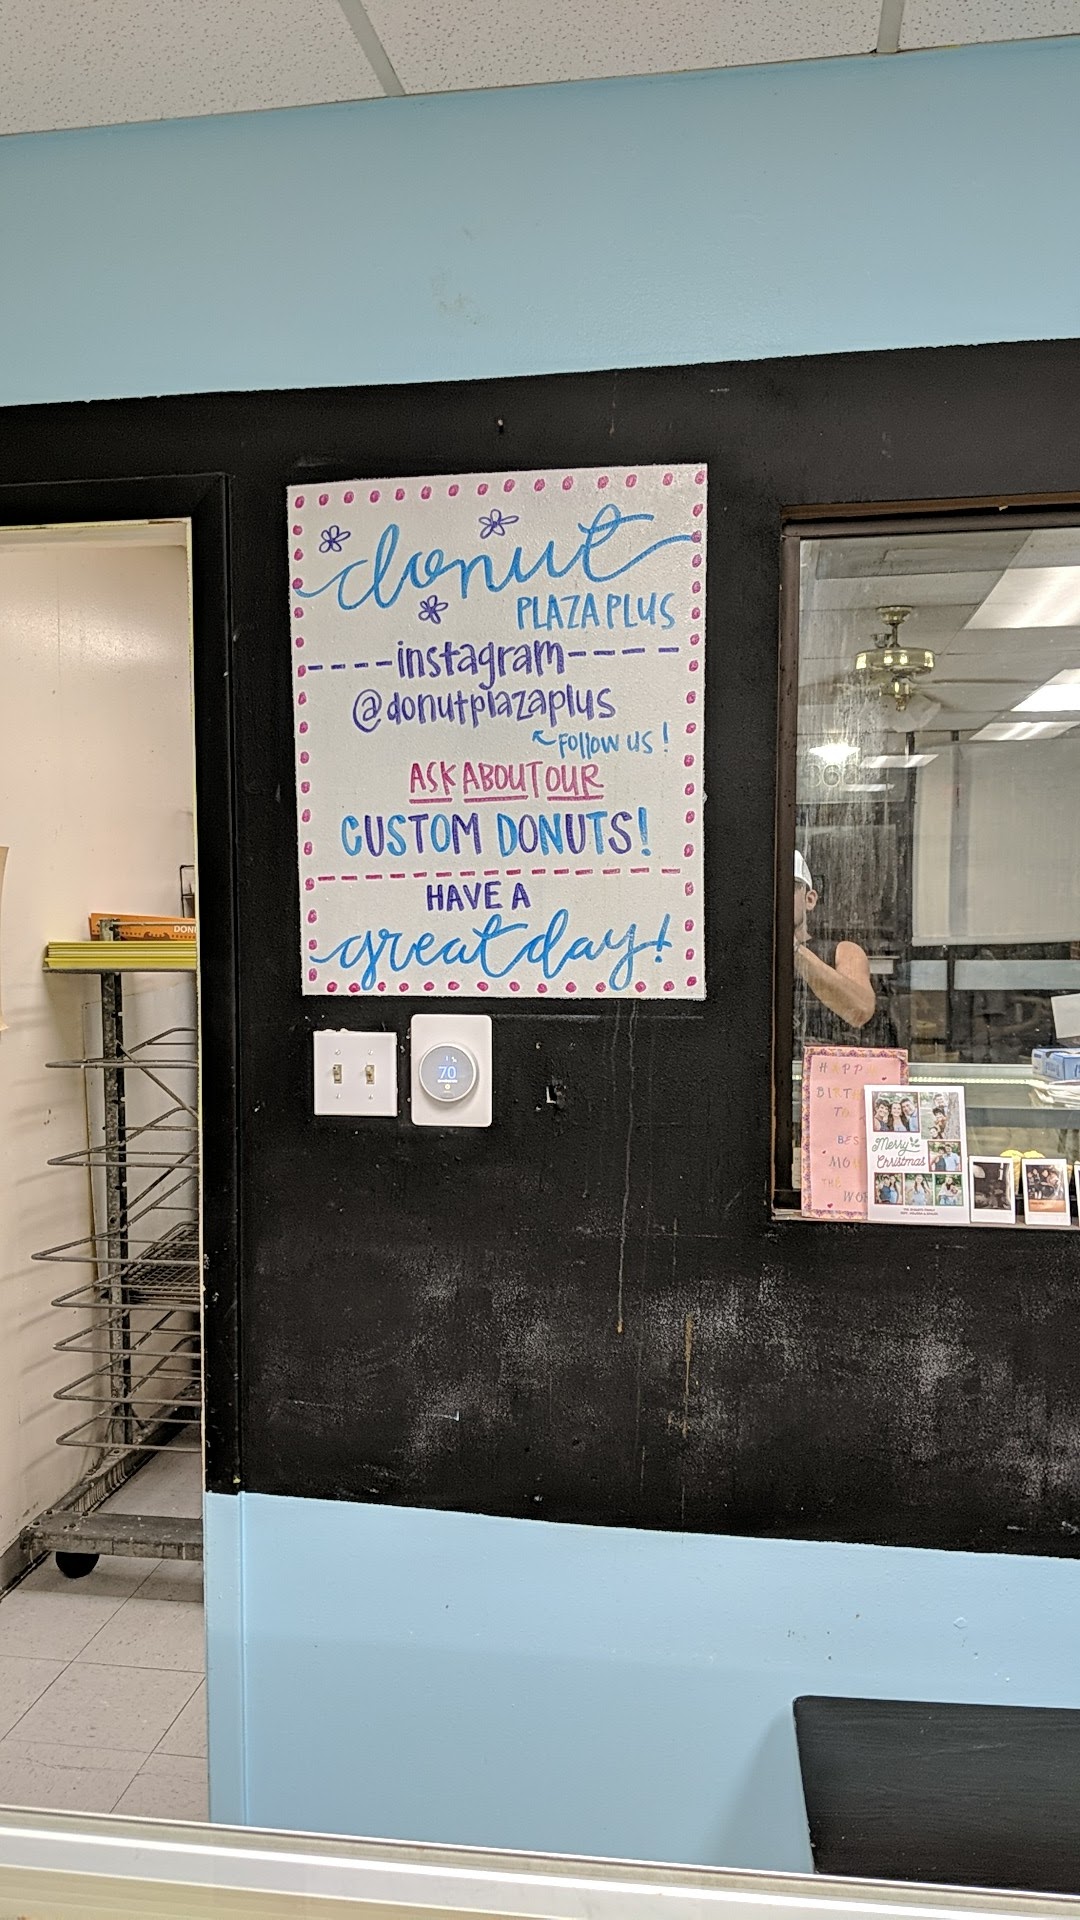 donut
PLAZA PLUS
----instagram----
@donutplazaplus
FOLLOW US!
ASK ABOUT OUR
CUSTOM DONUTS!
HAVE A
great day!
70
DON
HAPP
BIRTH
TO
BES
MOM
THE
WO
Merry
Christmas